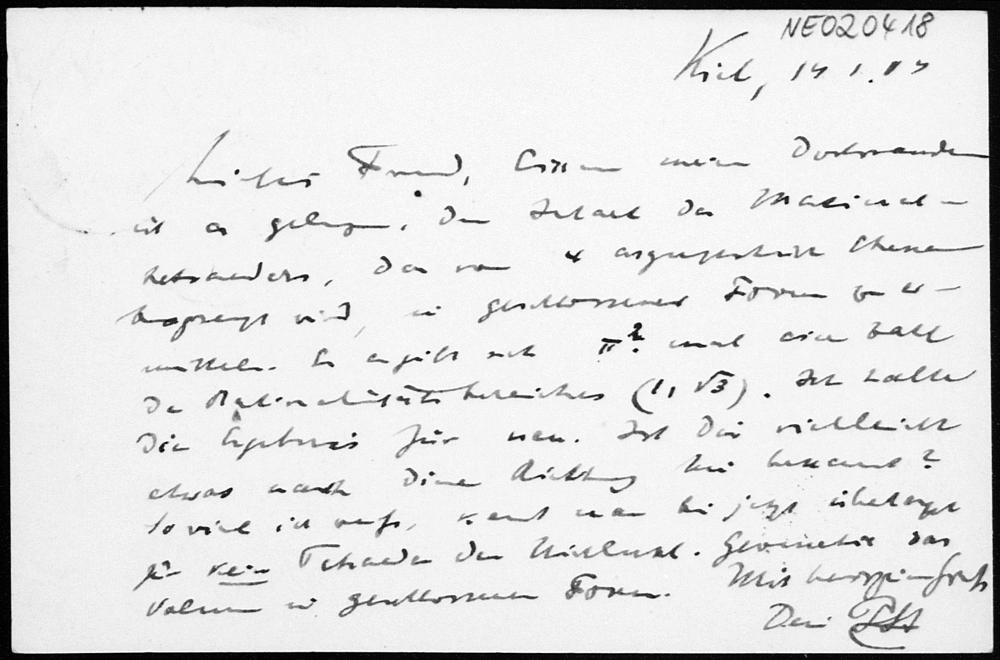 NE020418
Kiel, 14.1.14
Lieber Freund, Einem meiner Doktoranden
ist es gelungen, den Inhalt des Maximal-
tetraeders, das von 4 Ebenen
wird, in geschlossener Form zu er-
mitteln. Es ergibt sich π² mal eine Zahl
des Rationalitätsbereiches (1, √3). Ich halte
die Ergebnis für neu. Ist Dir vielleicht
etwas nach dieser Richtung hin bekannt?
So viel ich weiß, kennt man bis jetzt überhaupt
für kein Tetraeder der Nichteukl. Geometrie das
Volumen in geschlossener Form. Mit herzlichem Gruß
Dein